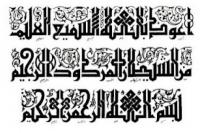 اعوذ بالله السميع العليم
من الشيطان المردود الرجيم
بسم الله الرحمن الرحيم